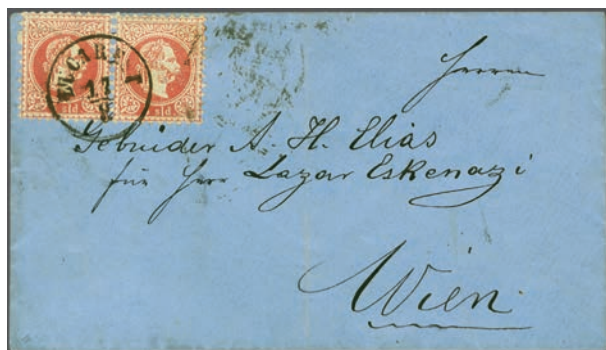 BUCAREST
17
sld sld
Herrn
Gebrüder A. H. Elias
für Herr Lazar Eskenazi
Wien.